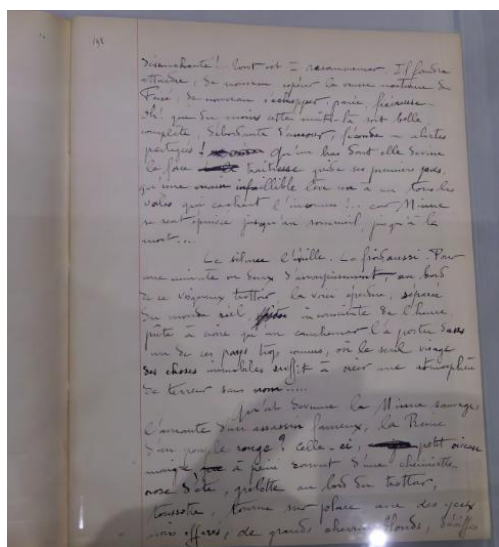 192
désenchanté ! Tout est à recommencer. Il faudra
attendre, de nouveau, copier la venue nocturne du
Frisé, de nouveau s'échapper, parée, fiévreuse...
Ah ! que du moins cette nuit-là soit belle,
complète, débordante d'amour, féconde en alertes
partagées ! Qu'un bras dont elle devine
la force traîtresse guide ses premiers pas,
qu'une main infaillible lève un à un tous les
voiles qui cachent l'inconnu !.. car Minne
se sent épuisée jusqu'au sommeil, jusqu'à la
mort...
Le silence l'éveille. Le froid aussi. Pour
une minute ou deux d'assoupissement, au bord
de ce trottoir, la voici éperdue, séparée
du monde réel, inconsciente de l'heure,
prête à croire qu'un cauchemar l'a portée dans
un de ces pays trop connus, où le seul visage
des choses immobiles suffit à créer une atmosphère
de terreur sans nom.....
Qu'est devenue la Minne sauvage,
l'amante d'un assassin fameux, la Reine
d'un peuple rouge ? Celle-ci, petit oiseau
maigre, à peine d'une chemisette
rose d'été, grelotte au bord du trottoir,
toussote, tourne sur place avec des yeux
noirs effarés, de grands cheveux blonds,